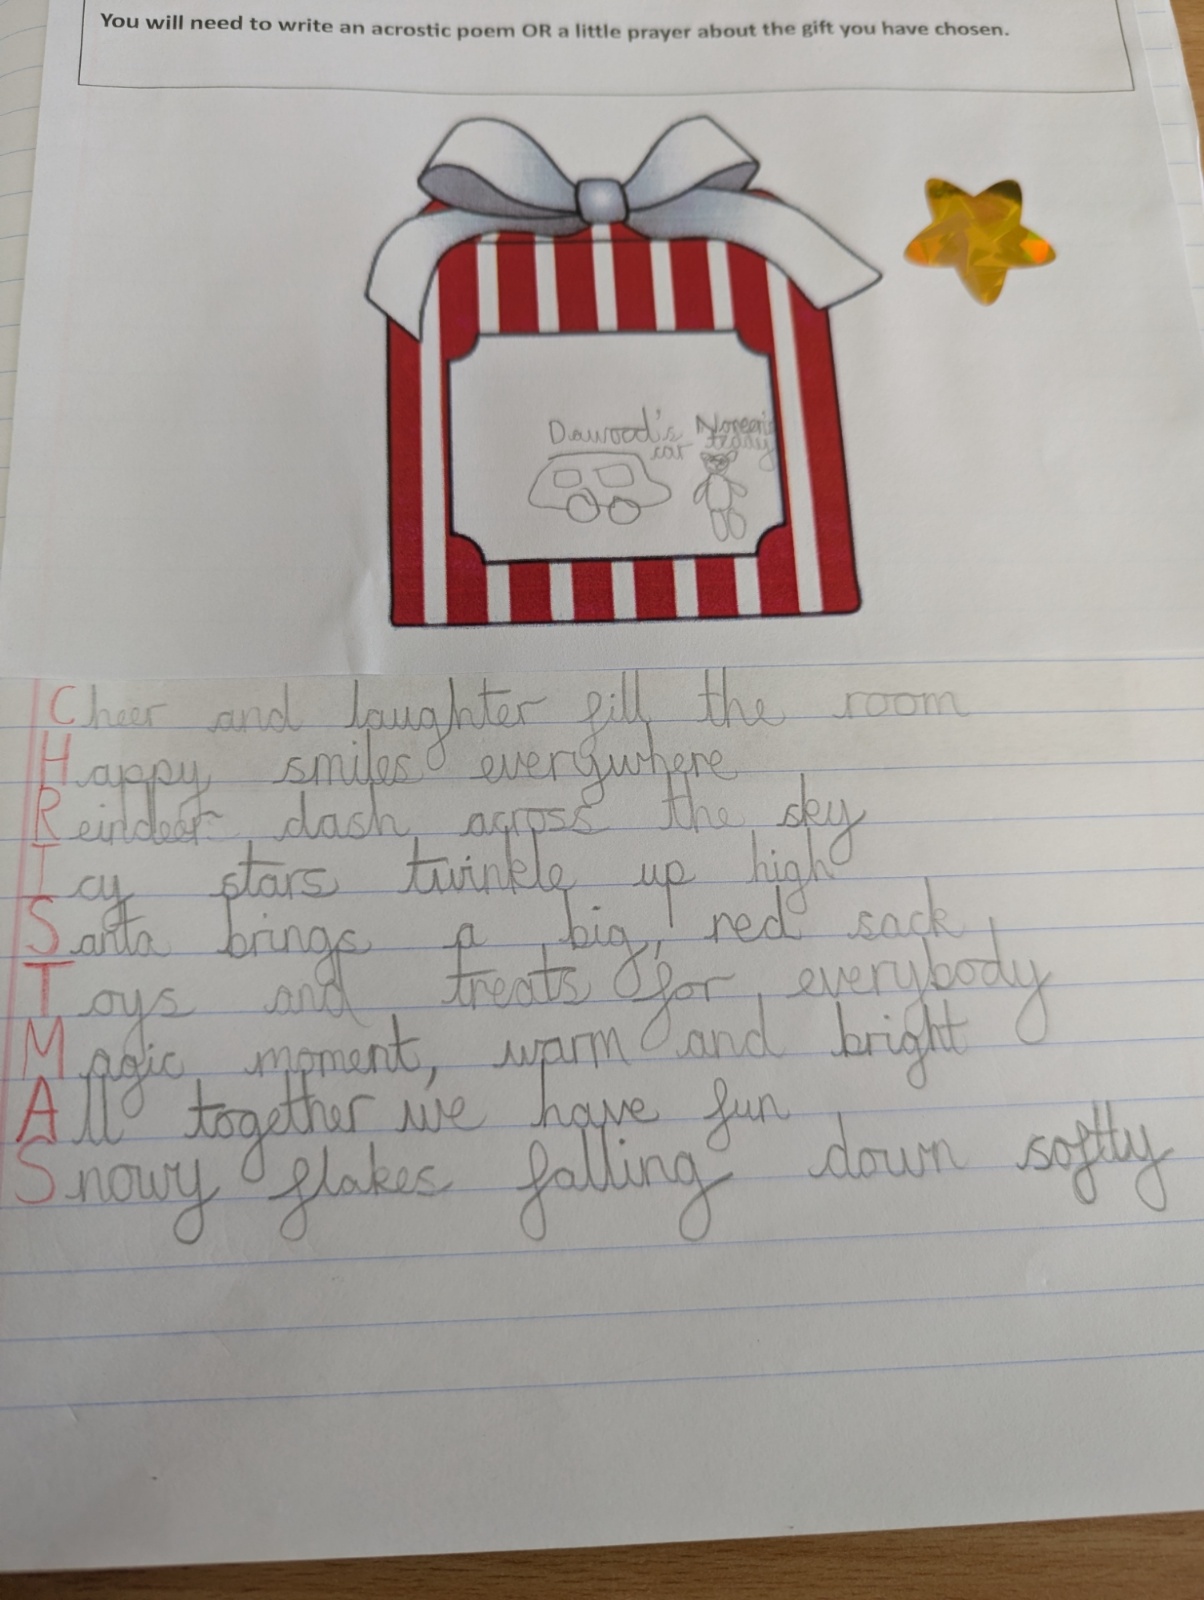 You will need to write an acrostic poem OR a little prayer about the gift you have chosen.
Dawood's Noreen's
car teddy
Cheer and laughter fill the room
Happy smiles everywhere
Reindeer dash across the sky
Icy stars twinkle up high
Santa brings a big, red sack
Toys and treats for everybody
Magic moment, warm and bright
All together we have fun
Snowy flakes falling down softly